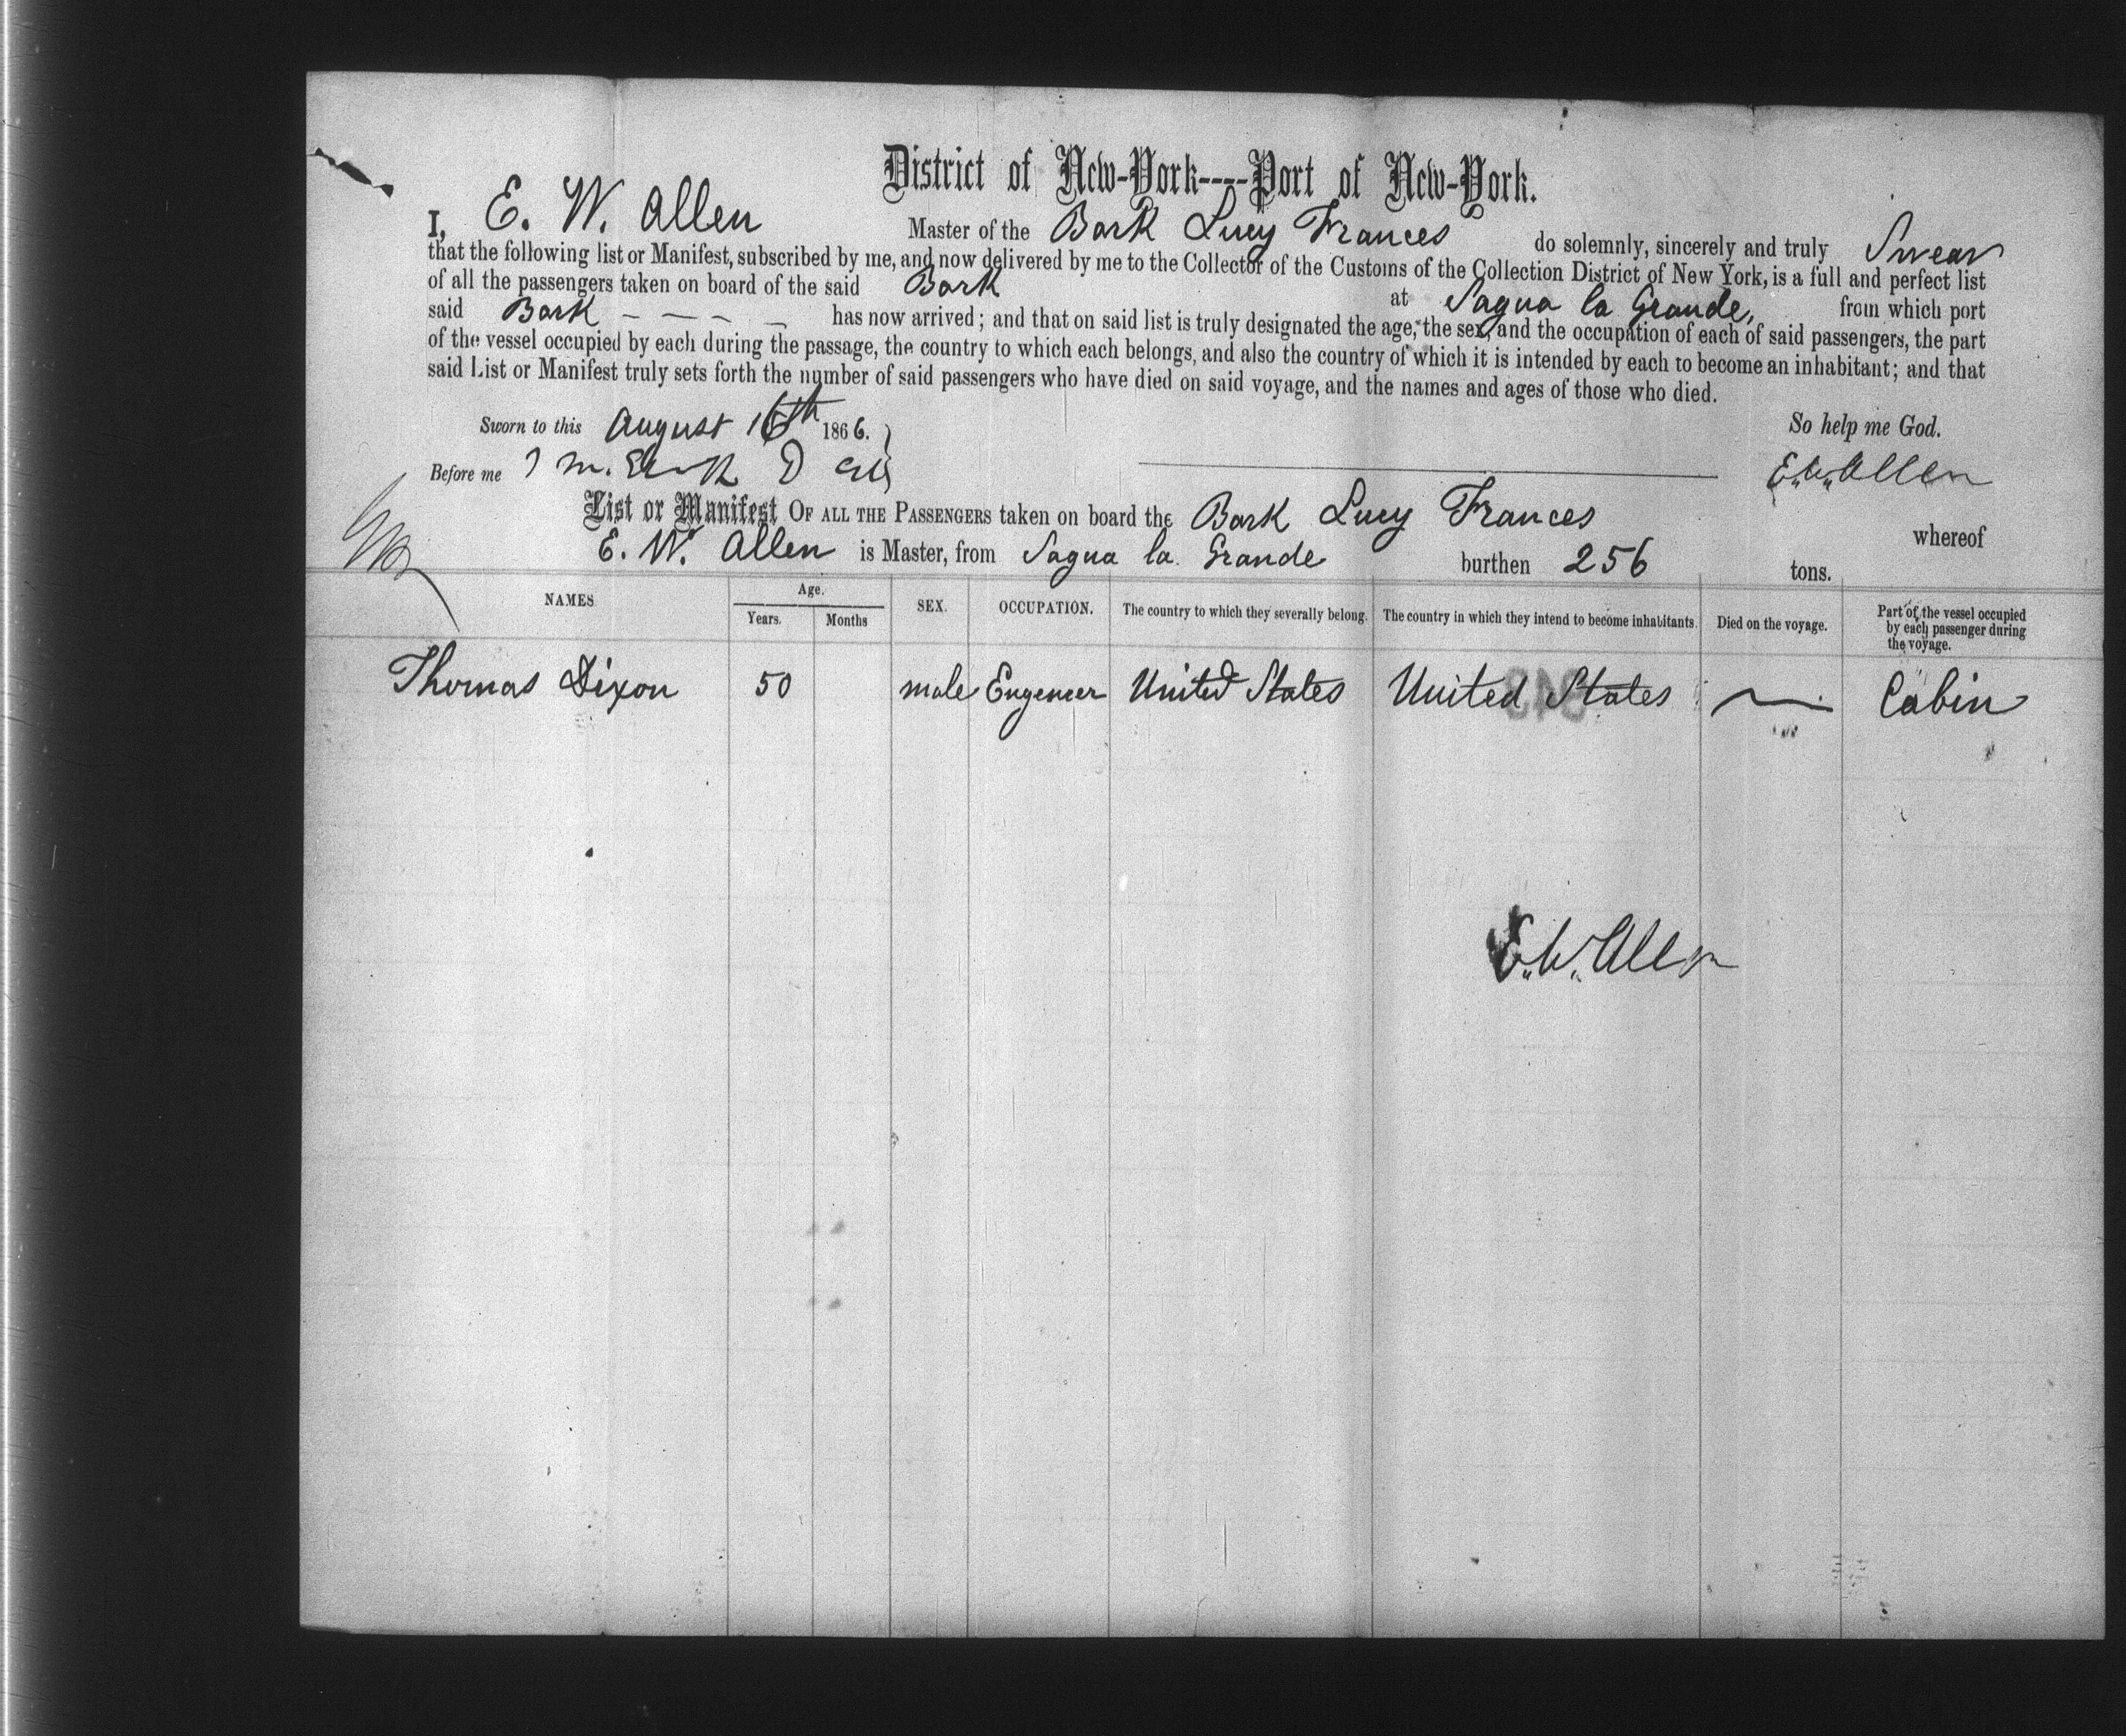 District of New-York----Port of New-York.
I, E. W. Allen Master of the Bark Lucy Frances do solemnly, sincerely and truly Swear
that the following list or Manifest, subscribed by me, and now delivered by me to the Collector of the Customs of the Collection District of New York, is a full and perfect list
of all the passengers taken on board of the said Bark at Sagua la Grande, from which port
said Bark - - - - has now arrived; and that on said list is truly designated the age, the sex, and the occupation of each of said passengers, the part
of the vessel occupied by each during the passage, the country to which each belongs, and also the country of which it is intended by each to become an inhabitant; and that
said List or Manifest truly sets forth the number of said passengers who have died on said voyage, and the names and ages of those who died.
Sworn to this August 16th 1866. So help me God.
Before me E.W. Allen
List or Manifest OF ALL THE PASSENGERS taken on board the Bark Lucy Frances whereof
E. W. Allen is Master, from Sagua la Grande burthen 256 tons.
NAMES Age. Years. Months SEX. OCCUPATION. The country to which they severally belong. The country in which they intend to become inhabitants. Died on the voyage. Part of the vessel occupied by each passenger during the voyage.
Thomas Dixon 50 male Engeneer United States United States — Cabin
E.W. Allen